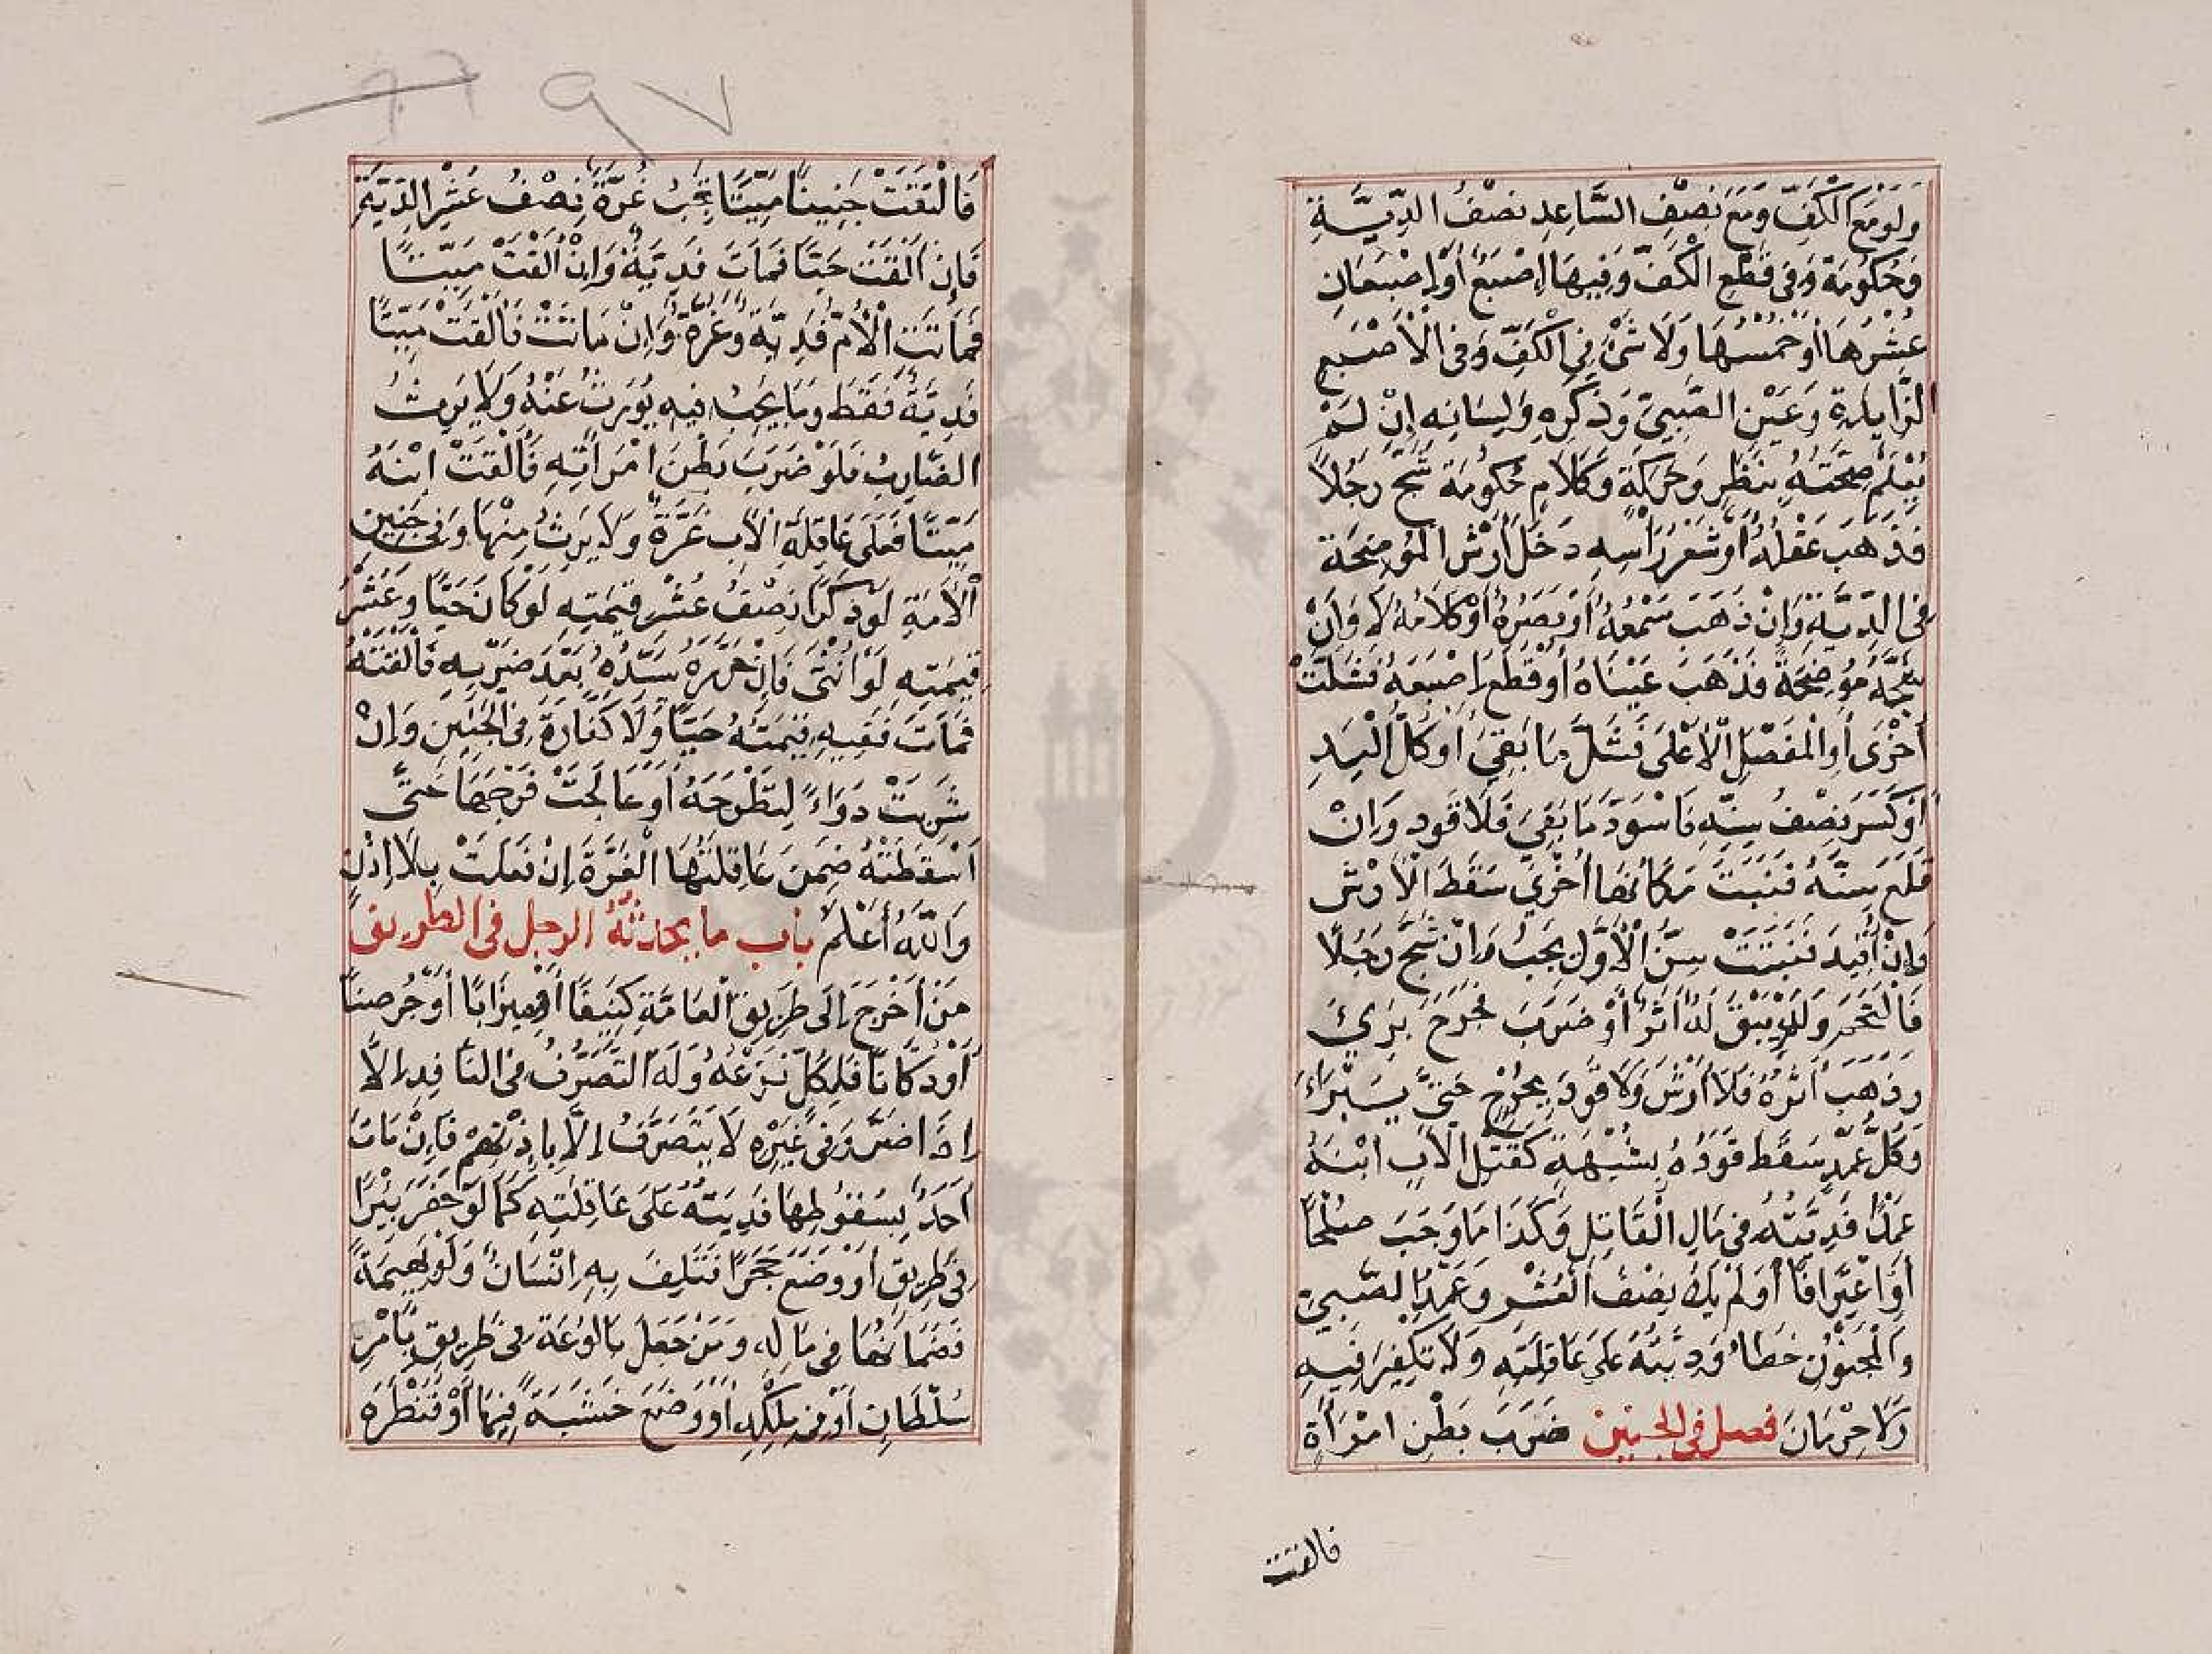 وَلَوْ مَعَ الْكَفِّ وَمَعَ نِصْفِ السَّاعِدِ نِصْفُ الدِّيَّةِ
وَحُكُومَةٌ وَفِى قَطْعِ الْكَفِّ وَفِيهَا اِصْبَعٌ أَوْ اِصْبَعَانِ
عُشْرُهَا أَوْ خُمْسُهَا وَلَا شَىْءَ فِى الْكَفِّ وَفِى الْأَصْبَعِ
الزَّايِدَةِ وَعَيْنِ الصَّبِىِّ وَذَكَرِهِ وَلِسَانِهِ إِنْ لَمْ
يُعْلَمْ صِحَّتُهُ بِنَظَرٍ وَحَرَكَةٍ وَكَلَامٍ حُكُومَةٌ شَجَّ رَجُلاً
فَذَهَبَ عَقْلُهُ أَوْ شَعَرُ رَأْسِهِ دَخَلَ أَرْشُ الْمُوضِحَةِ
فِى الدِّيَّةِ وَإِنْ ذَهَبَ سَمْعُهُ أَوْ بَصَرُهُ أَوْ كَلَامُهُ لَا وَإِنْ
شَجَّهُ مُوضِحَةً فَذَهَبَ عَيْنَاهُ أَوْ قَطَعَ اِصْبَعَهُ فَشَلَّتْ
أُخْرَى أَوِ الْمَفْصِلَ الْأَعْلَى فَشَلَّ مَا بَقِىَ أَوْ كُلُّ الْيَدِ
أَوْ كَسَرَ نِصْفَ سِنِّهِ فَاسْوَدَّ مَا بَقِىَ فَلَا قَوَدَ وَإِنْ
قَلَعَ سِنَّهُ فَنَبَتَ مَكَانَهَا أُخْرَى سَقَطَ الْأَرْشُ
وَإِنْ أُقِيدَ فَنَبَتَتْ سِنُّ الْأَوَّلِ يَجِبُ وَإِنْ شَجَّ رَجُلاً
فَالْتَحَمَ وَلَمْ يَبْقَ لَهُ أَثَرٌ أَوْ ضَرَبَ فَجَرَحَ بَرِىَ
وَذَهَبَ أَثَرُهُ فَلَا أَرْشَ وَلَا قَوَدَ بِجُرْحٍ حَتَّى يَبْرَاءَ
وَكُلُّ عَمْدٍ سَقَطَ قَوَدُهُ بِشُبْهَةٍ كَقَتْلِ الْأَبِ ابْنَهُ
عَمْدًا فَدِيَّتُهُ فِى مَالِ الْقَاتِلِ وَكَذَا مَا وَجَبَ صُلْحًا
أَوْ اعْتِرَافًا أَوْ لَمْ يَكُ نِصْفُ الْعُشْرِ وَعَمْدُ الصَّبِىِّ
وَالْمَجْنُونِ خَطَاءٌ وَدِيَّتُهُ عَلَى عَاقِلَتِهِ وَلَا تَكْفِيرَ فِيهِ
وَلَا حِرْمَانَ فصل فى الجنين ضَرَبَ بَطْنَ امْرَأَةٍ
فالقت
٦٩٧
فَالْقَتْ جَنِينًا مَيِّتًا يَجِبُ غُرَّةٌ نِصْفُ عُشْرِ الدِّيَّةِ
فَإِنْ أَلْقَتْ حَيًّا فَمَاتَ فَدِيَةٌ وَإِنْ أَلْقَتْ مَيِّتًا
فَمَاتَتِ الْأُمُّ فَدِيَّةٌ وَغُرَّةٌ وَإِنْ مَاتَتْ فَالْقَتْ مَيِّتًا
فَدِيَّةٌ فَقَطْ وَمَا يَجِبُ فِيهِ يُورَثُ عَنْهُ وَلَا يَرِثُ
الضَّارِبُ فَلَوْ ضَرَبَ بَطْنَ امْرَأَتِهِ فَأَلْقَتْ ابْنَهُ
مَيِّتًا فَعَلَى عَاقِلَةِ الْأَبِ غُرَّةٌ وَلَا يَرِثُ مِنْهَا وَفِى جَنِينِ
الْأَمَةِ لَوْ ذَكَرًا نِصْفُ عُشْرِ قِيمَتِهِ لَوْ كَانَ حَيًّا وَعُشْرُ
قِيمَتِهِ لَوْ أُنْثَى فَإِنْ حَرَّرَهُ سَيِّدُهُ بَعْدَ ضَرْبِهِ فَأَلْقَتْهُ
فَمَاتَ فَفِيهِ قِيمَتُهُ حَيًّا وَلَا كَفَّارَةَ فِى الْجَنِينِ وَإِنْ
شَرِبَتْ دَوَاءً لِتَطْرَحَهُ أَوْ عَالَجَتْ فَرْجَهَا حَتَّى
أَسْقَطَتْهُ ضَمِنَ عَاقِلَتُهَا الْغُرَّةَ إِنْ فَعَلَتْ بِلَا إِذْنٍ
وَاللّٰهُ أَعْلَمُ باب ما يحدثه الرجل فى الطريق
مَنْ أَخْرَجَ إِلَى طَرِيقِ الْعَامَّةِ كَنِيفًا أَوْ مِيزَابًا أَوْ جُرْصُنًا
أَوْ دُكَّانًا فَلِكُلٍّ نَزْعُهُ وَلَهُ التَّصَرُّفُ فِى النَّافِدِ اِلَّا
اِذَا اضَرَّ وَفِى غَيْرِهِ لَا يَتَصَرَّفُ اِلَّا بِاِذْنِهِمْ فَإِنْ مَاتَ
أَحَدٌ بِسُقُوطِهَا فَدِيَتُهُ عَلَى عَاقِلَتِهِ كَمَا لَوْ حَفَرَ بِيْرًا
فِى طَرِيقٍ أَوْ وَضَعَ حَجَرًا فَتَلِفَ بِهِ اِنْسَانٌ وَلَوْ بَهِيمَةً
فَضَمَانُهَا فِى مَالِهِ وَمَنْ جَعَلَ بَالُوعَةً فِى طَرِيقٍ بِأَمْرِ
سُلْطَانٍ أَوْ فِى مِلْكِهِ أَوْ وَضَعَ خَشَبَةً فِيهَا أَوْ قَنْطَرَةً